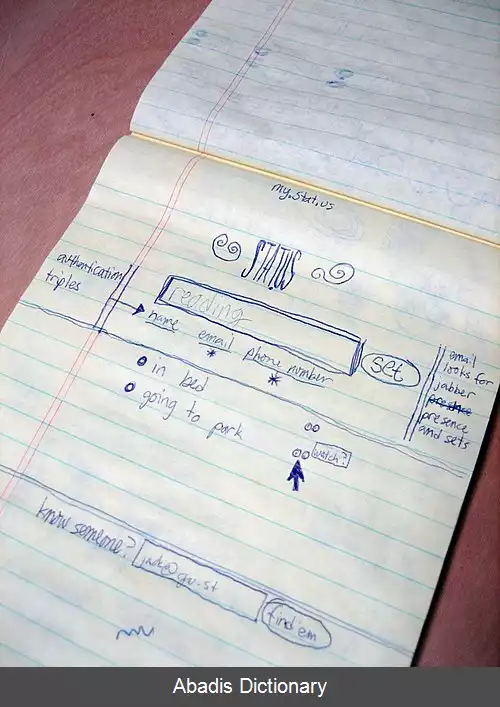 my.stat.us
STAT.US
authentication
triples
reading
name
email
phone number
set
in bed
going to park
watch?
email
looks for
jabber
presence
presence
and sets
know someone?
find 'em
Abadis Dictionary